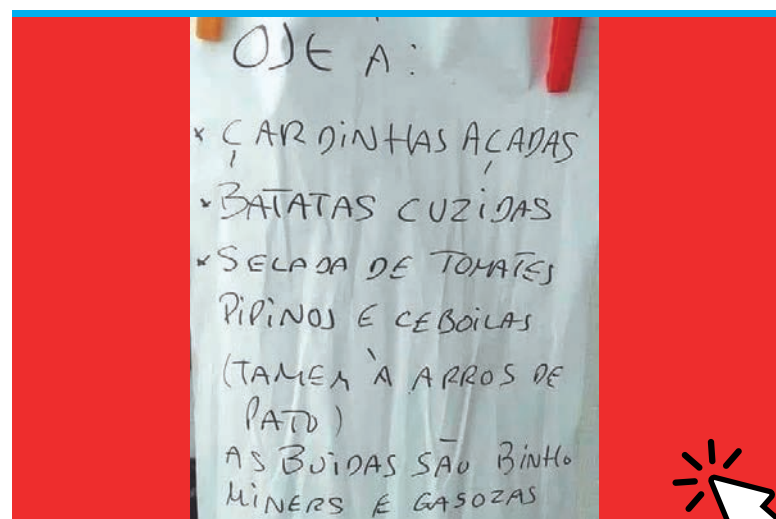 OJE À:
× ÇARDINHAS AÇADAS
× BATATAS CUZIDAS
× SELADA DE TOMATES
PIPINOS E CEBOILAS
(TAMEM À ARROS DE
PATO)
AS BUIDAS SÃO BINHO
MINERS E GASOZAS